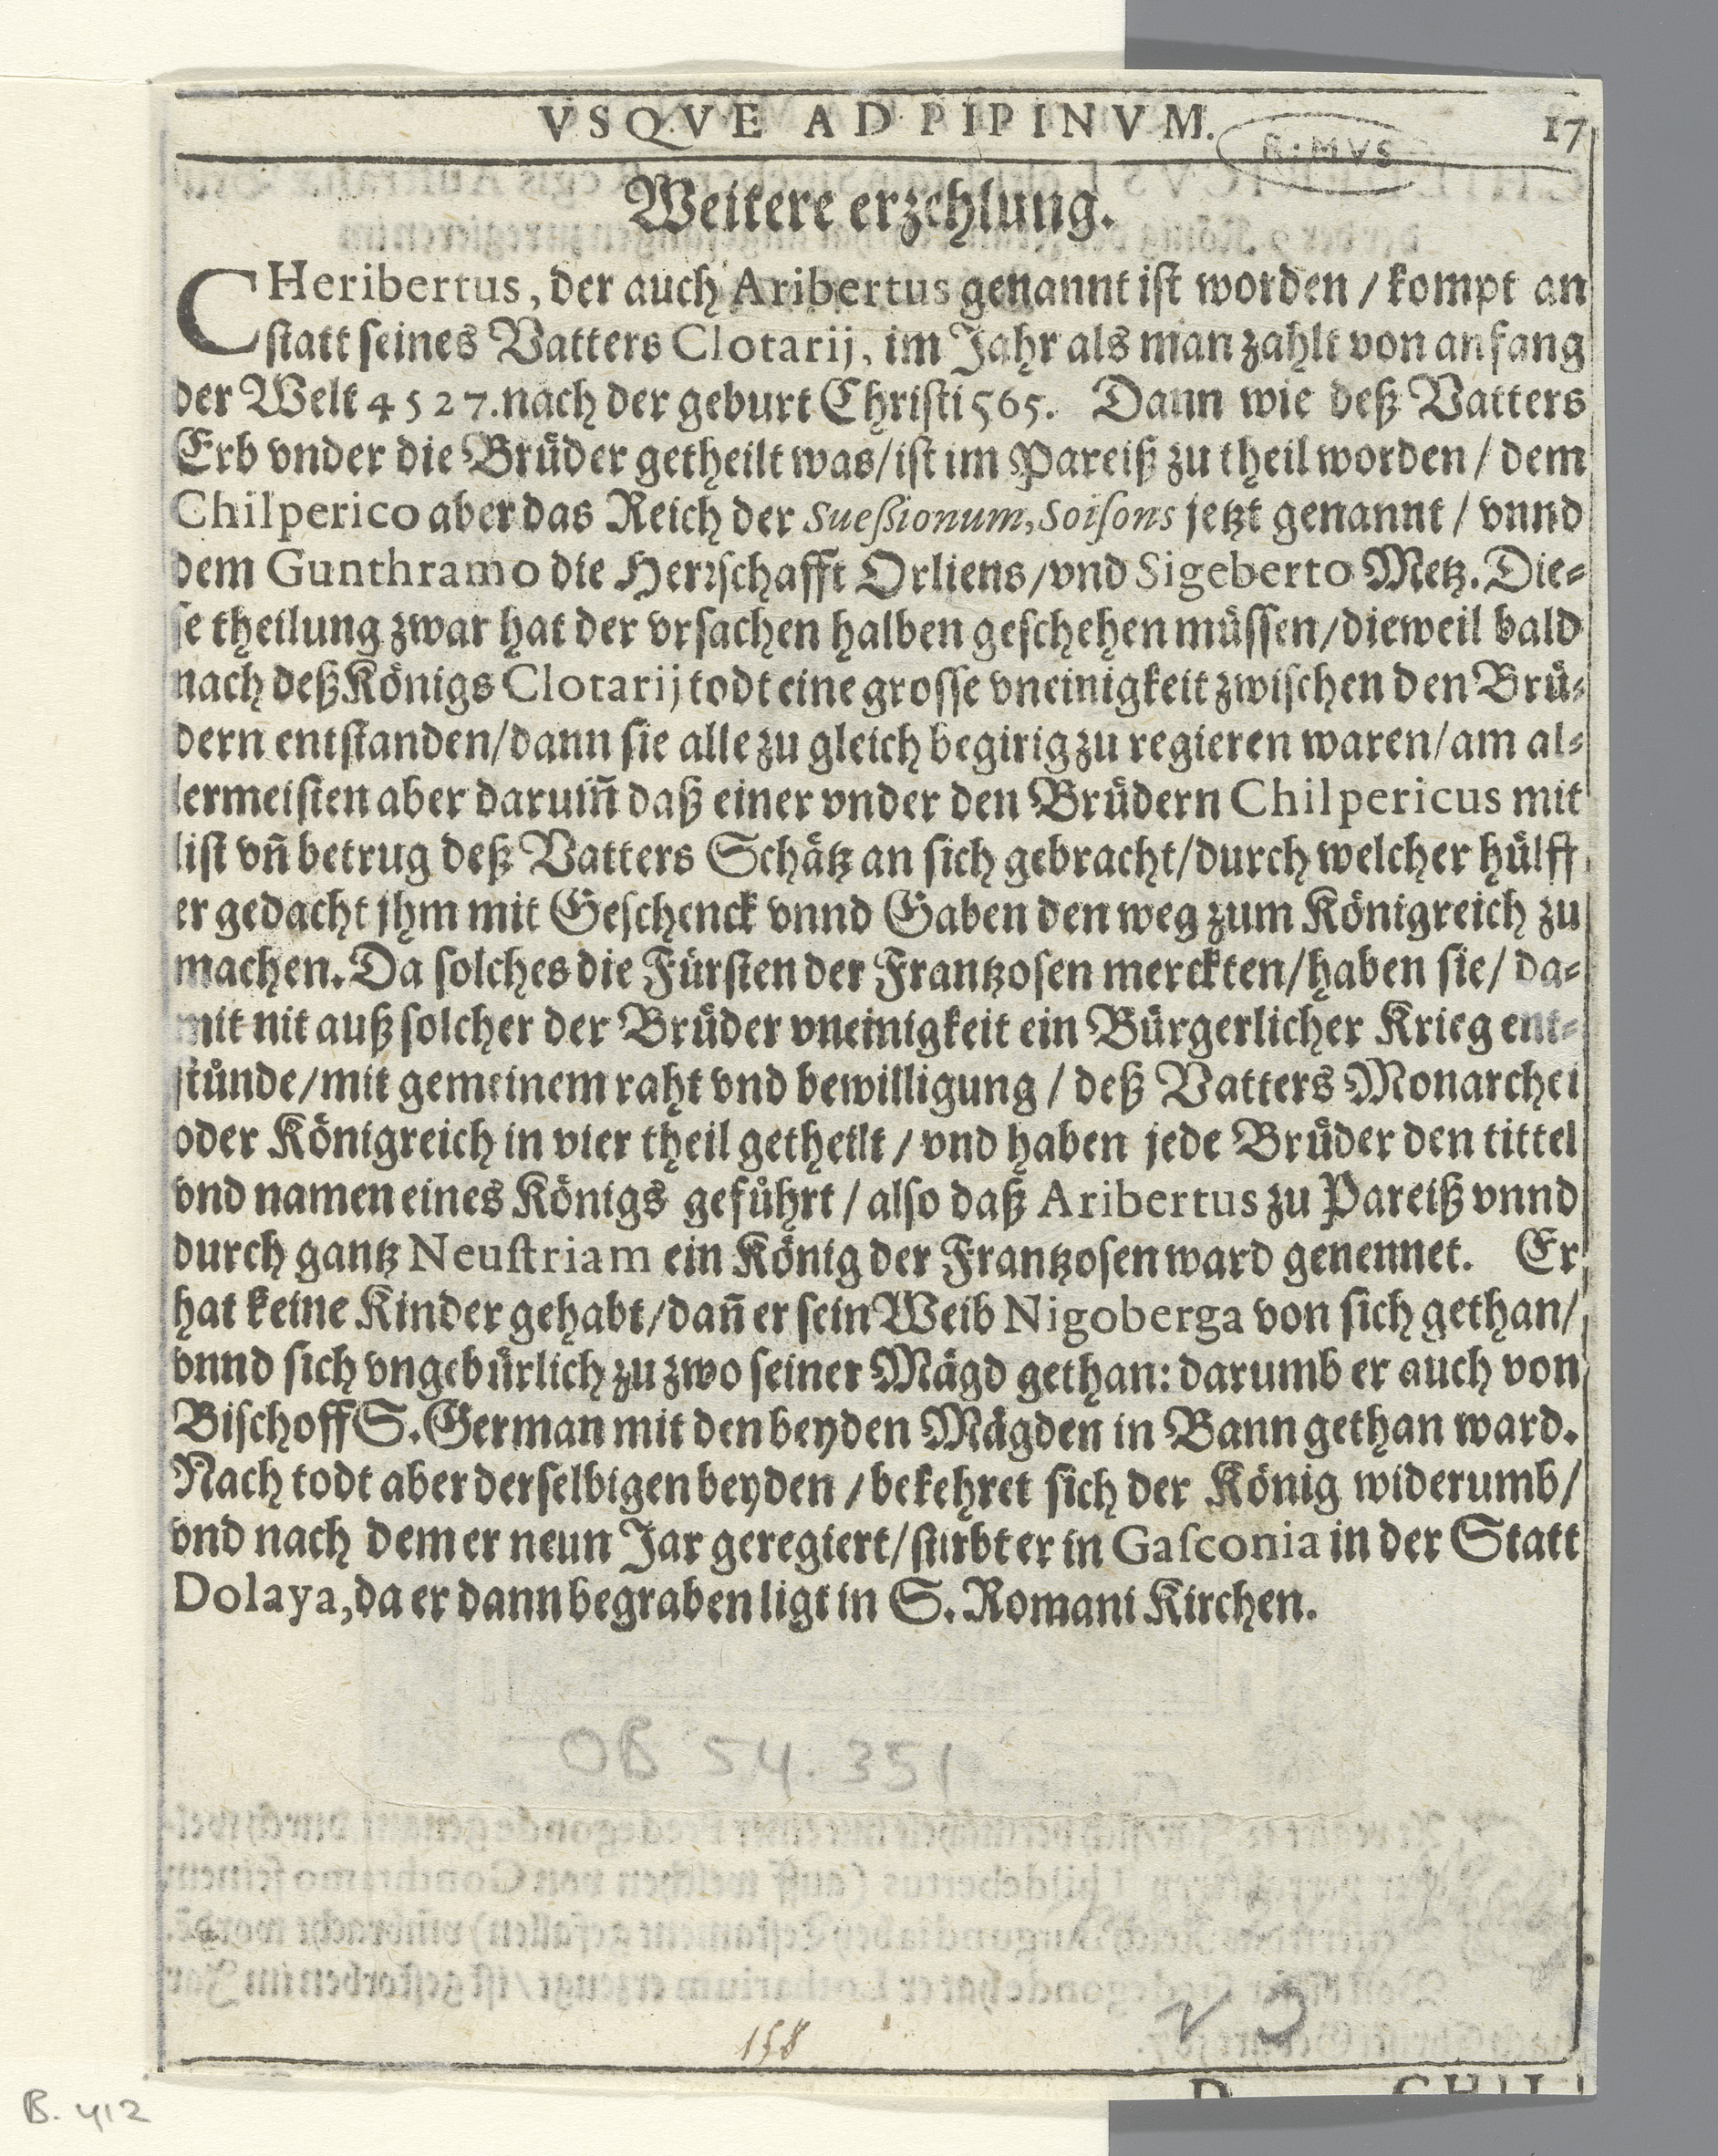 VSQVE AD PIPINVM. 17
R·MVS
Weitere erzehlung.
CHeribertus, der auch Aribertus genannt ist worden / kompt an
statt seines Vatters Clotarij, im Jahr als man zahlt von anfang
der Welt 4527. nach der geburt Christi 565. Dann wie deß Vatters
Erb vnder die Brüder getheilt was / ist im Pareiß zu theil worden / dem
Chilperico aber das Reich der Suessionum, Soisons jetzt genannt / vnnd
dem Gunthramo die Herrschafft Orliens / vnd Sigeberto Metz. Die-
se theilung zwar hat der vrsachen halben geschehen müssen / dieweil bald
nach deß Königs Clotarij todt eine grosse vneinigkeit zwischen den Brü-
dern entstanden / dann sie alle zu gleich begirig zu regieren waren / am al-
lermeisten aber darum̃ daß einer vnder den Brüdern Chilpericus mit
list vñ betrug deß Vatters Schätz an sich gebracht / durch welcher hülff
er gedacht jhm mit Geschenck vnnd Gaben den weg zum Königreich zu
machen. Da solches die Fürsten der Frantzosen merckten / haben sie / da-
mit nit auß solcher der Brüder vneinigkeit ein Bürgerlicher Krieg ent-
stünde / mit gemeinem raht vnd bewilligung / deß Vatters Monarchei
oder Königreich in vier theil getheilt / vnd haben jede Brüder den tittel
vnd namen eines Königs geführt / also daß Aribertus zu Pareiß vnnd
durch gantz Neustriam ein König der Frantzosen ward genennet. Er
hat keine Kinder gehabt / dañ er sein Weib Nigoberga von sich gethan /
vnnd sich vngebürlich zu zwo seiner Mägd gethan: darumb er auch von
Bischoff S. German mit den beyden Mägden in Bann gethan ward.
Nach todt aber derselbigen beyden / bekehret sich der König widerumb /
vnd nach dem er neun Jar geregiert / stirbt er in Gasconia in der Statt
Dolaya, da er dann begraben ligt in S. Romani Kirchen.
OB 54.351
158
D CHIL
B. 412